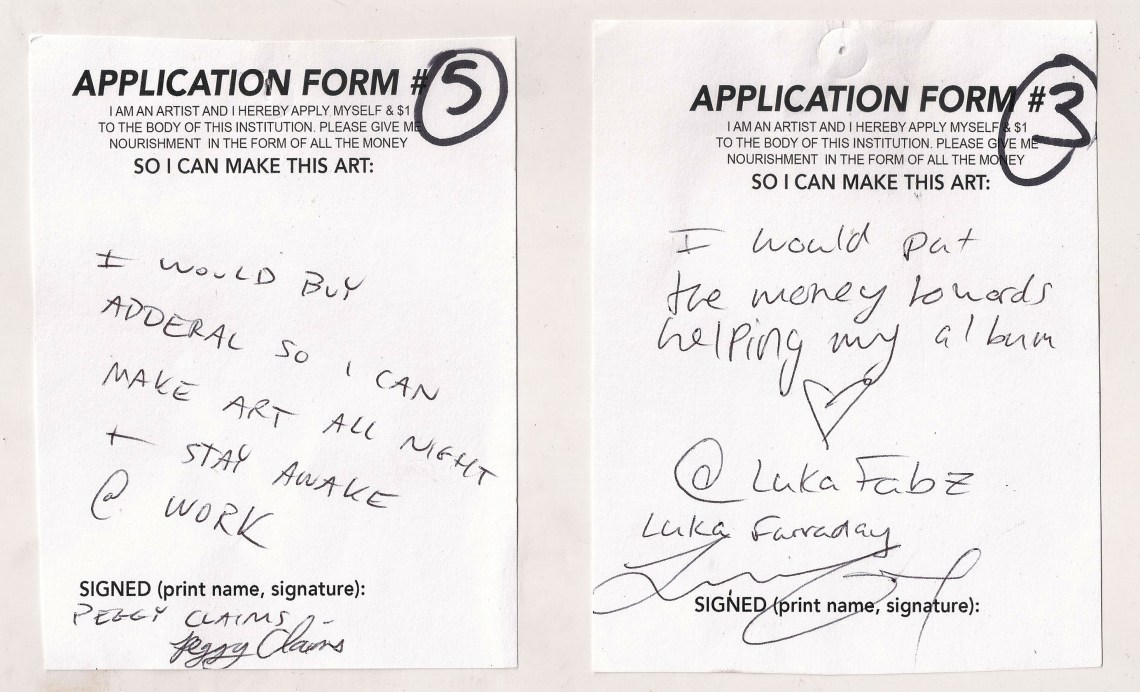 APPLICATION FORM #5
I AM AN ARTIST AND I HEREBY APPLY MYSELF & $1
TO THE BODY OF THIS INSTITUTION. PLEASE GIVE ME
NOURISHMENT IN THE FORM OF ALL THE MONEY
SO I CAN MAKE THIS ART:
I WOULD BUY
ADDERAL SO I CAN
MAKE ART ALL NIGHT
+ STAY AWAKE
@ WORK
SIGNED (print name, signature):
PEGGY CLAIMS
Peggy Claims
APPLICATION FORM #3
I AM AN ARTIST AND I HEREBY APPLY MYSELF & $1
TO THE BODY OF THIS INSTITUTION. PLEASE GIVE ME
NOURISHMENT IN THE FORM OF ALL THE MONEY
SO I CAN MAKE THIS ART:
I would put
the money towards
helping my album
@LukaFabz
Luka Farraday
SIGNED (print name, signature):